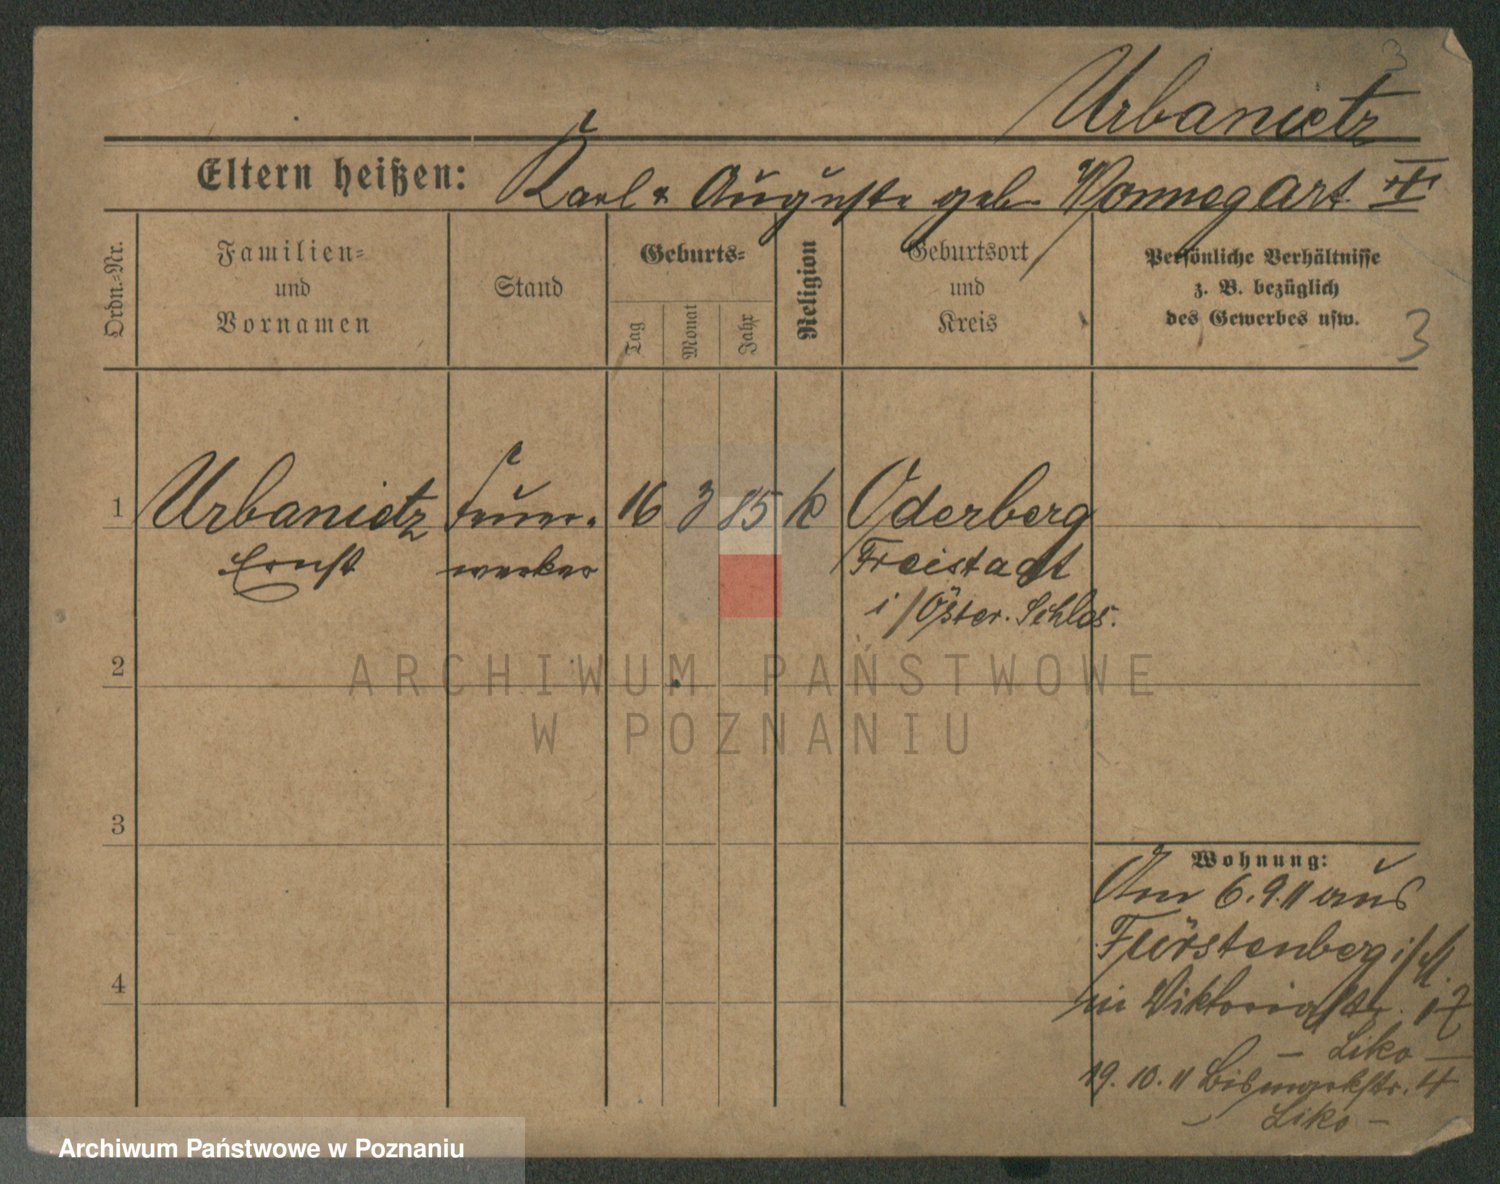 3
Urbanietz
Eltern heißen: Karl & Auguste geb Wonnegart
Ordn.-Nr.
Familien- und Vornamen
Stand
Geburts-
Tag
Monat
Jahr
Religion
Geburtsort und Kreis
Persönliche Verhältnisse
z. B. bezüglich
des Gewerbes usw.
3
1 Urbanietz 16 3 85 k Oderberg
Ernst werker Freistadt
i/Öster. Schles.
2
ARCHIWUM PAŃSTWOWE
W POZNANIU
3
Wohnung:
Am 6.9.11 aus
Fürstenberg
4
in Viktoriastr. 17
– Liko –
19.10.11 Bismarkstr. 4
– Liko –
Archiwum Państwowe w Poznaniu